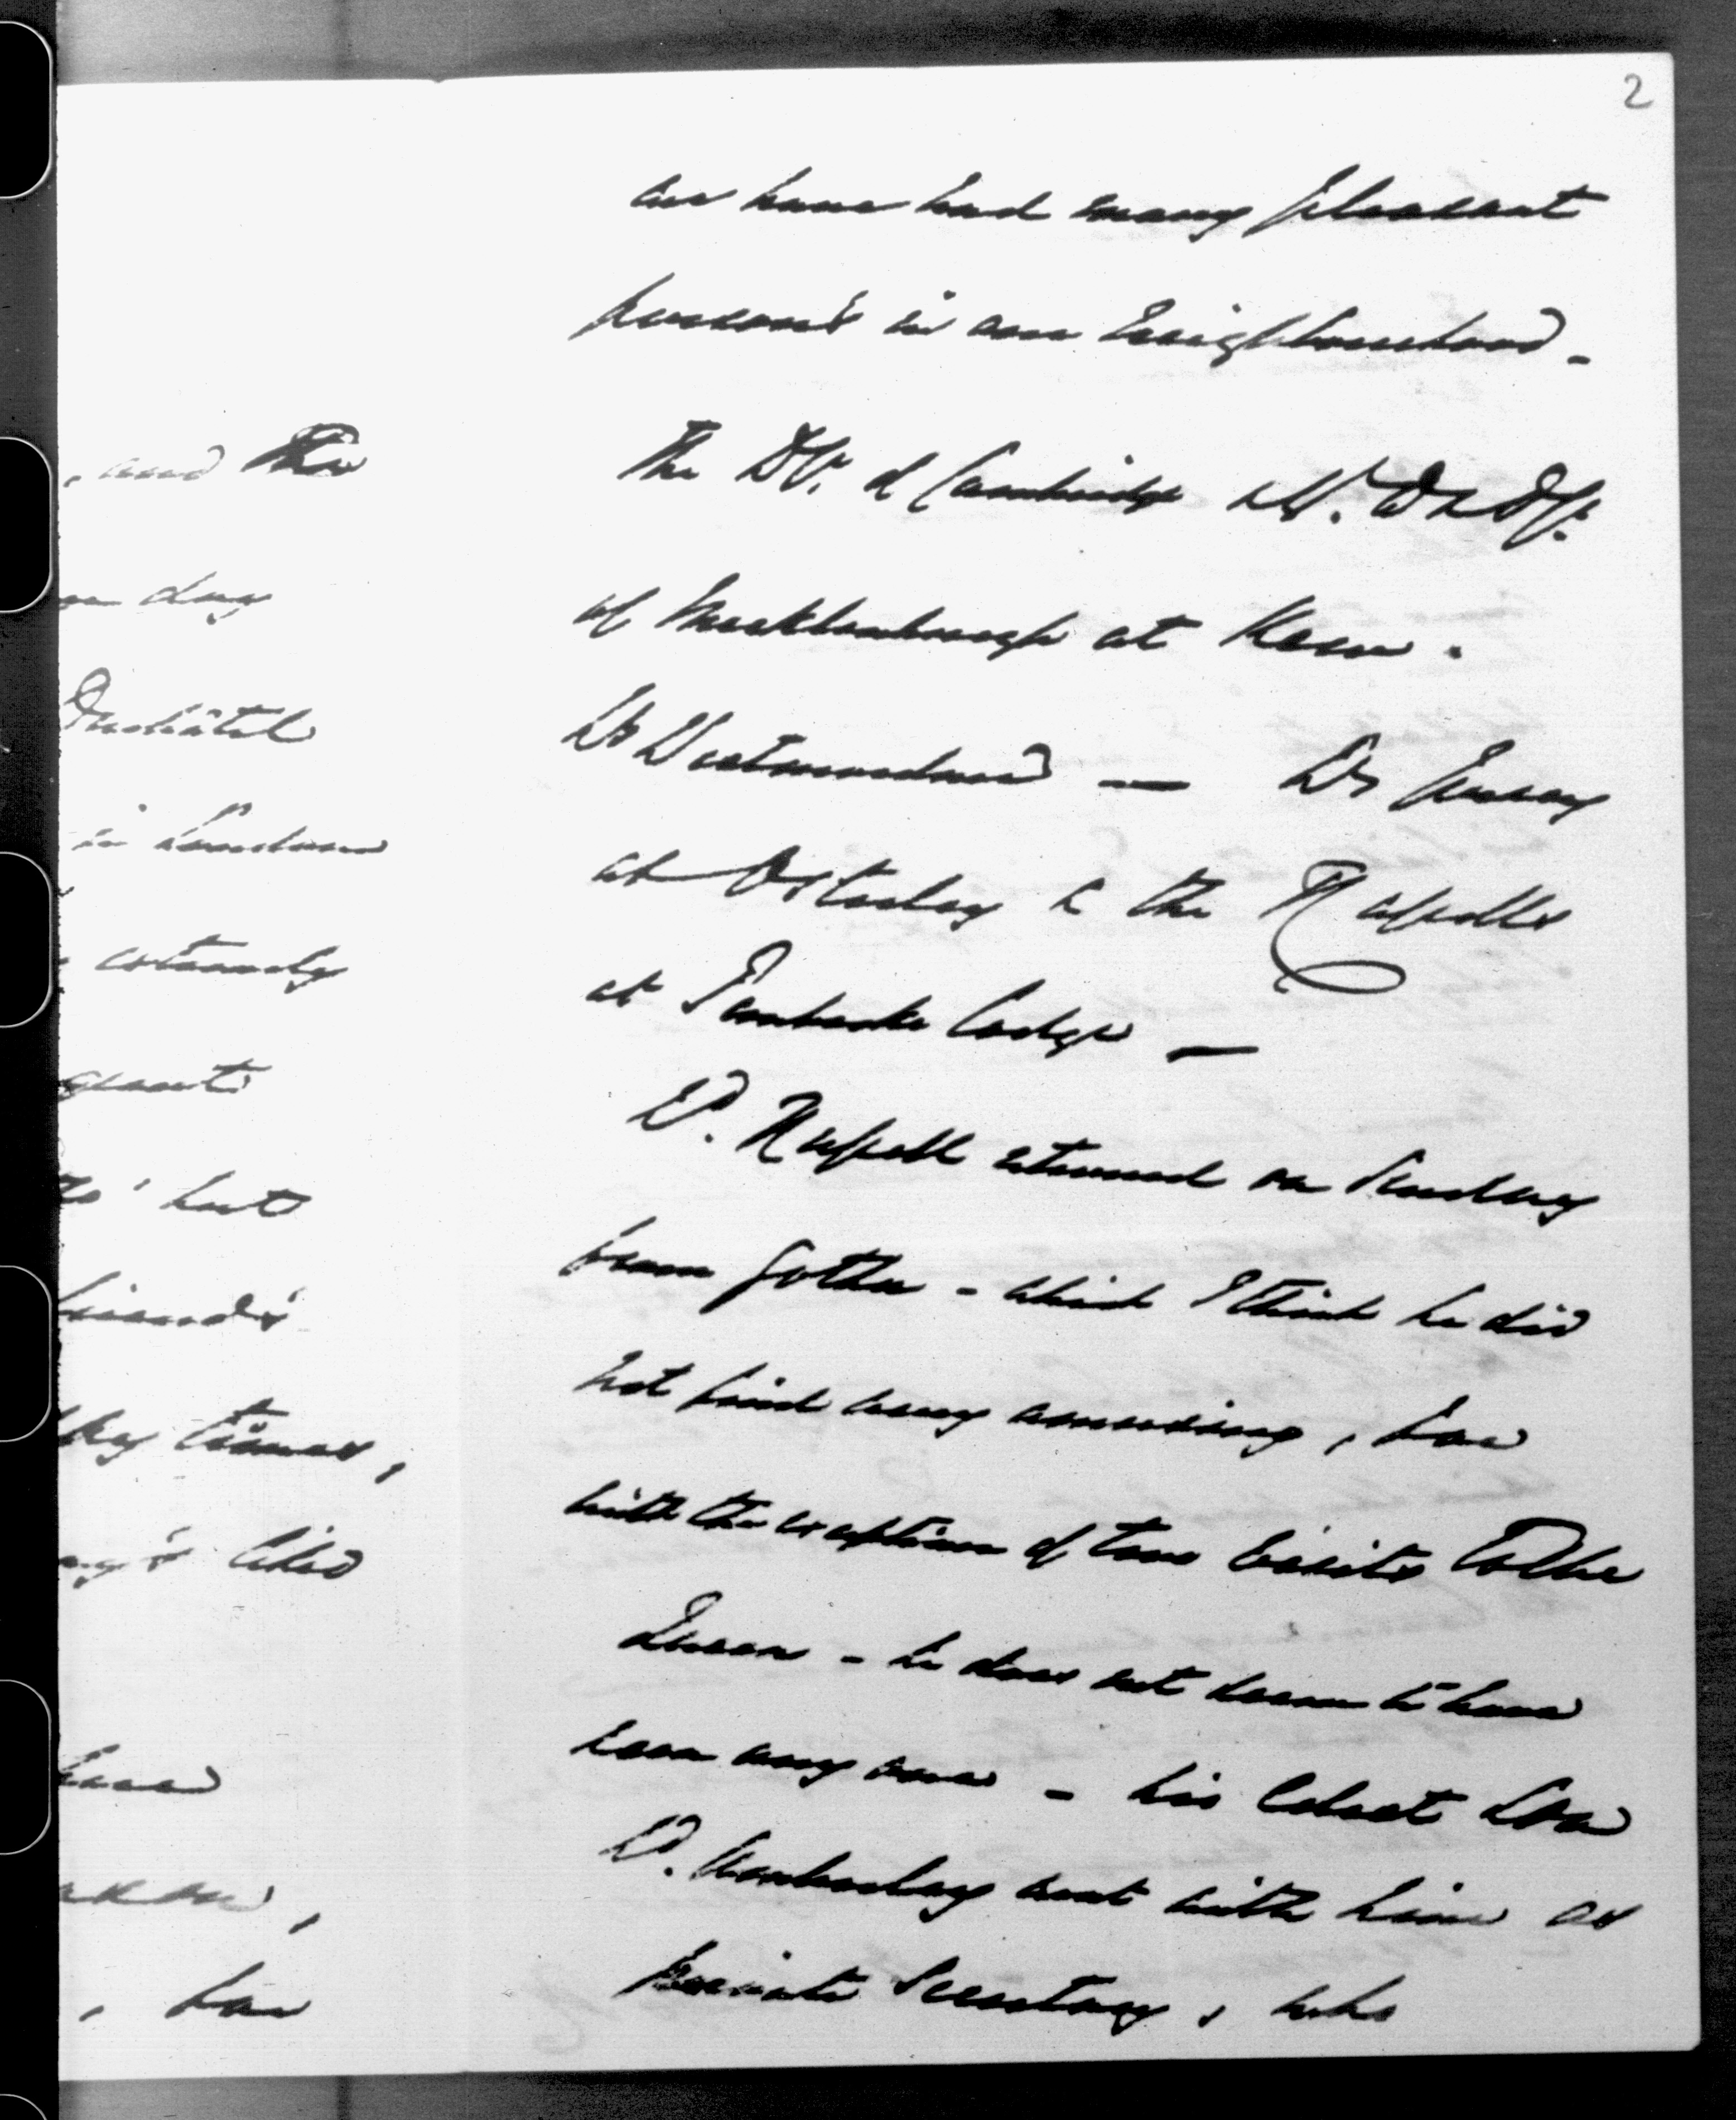 2
we have had many pleasant
persons in our Neighbourhood -
The Dss. of Cambridge & Gd. D & Dss.
of Mecklenburgh at Kew.
Ly Westmorland — Ly Jersey
at Osterley & the Russells
at Pembroke Lodge —
Ld. Russell returned on Sunday
from Gotha - which I think he did
not find very amusing, for
with the exception of two visits to the
Queen - he does not seem to have
seen any one - his eldest Son
Ld. Amberley went with him as
private Secretary, who
, and the
day
Neuchâtel
in London
extremely
but
friends
times,
liked
have
, for